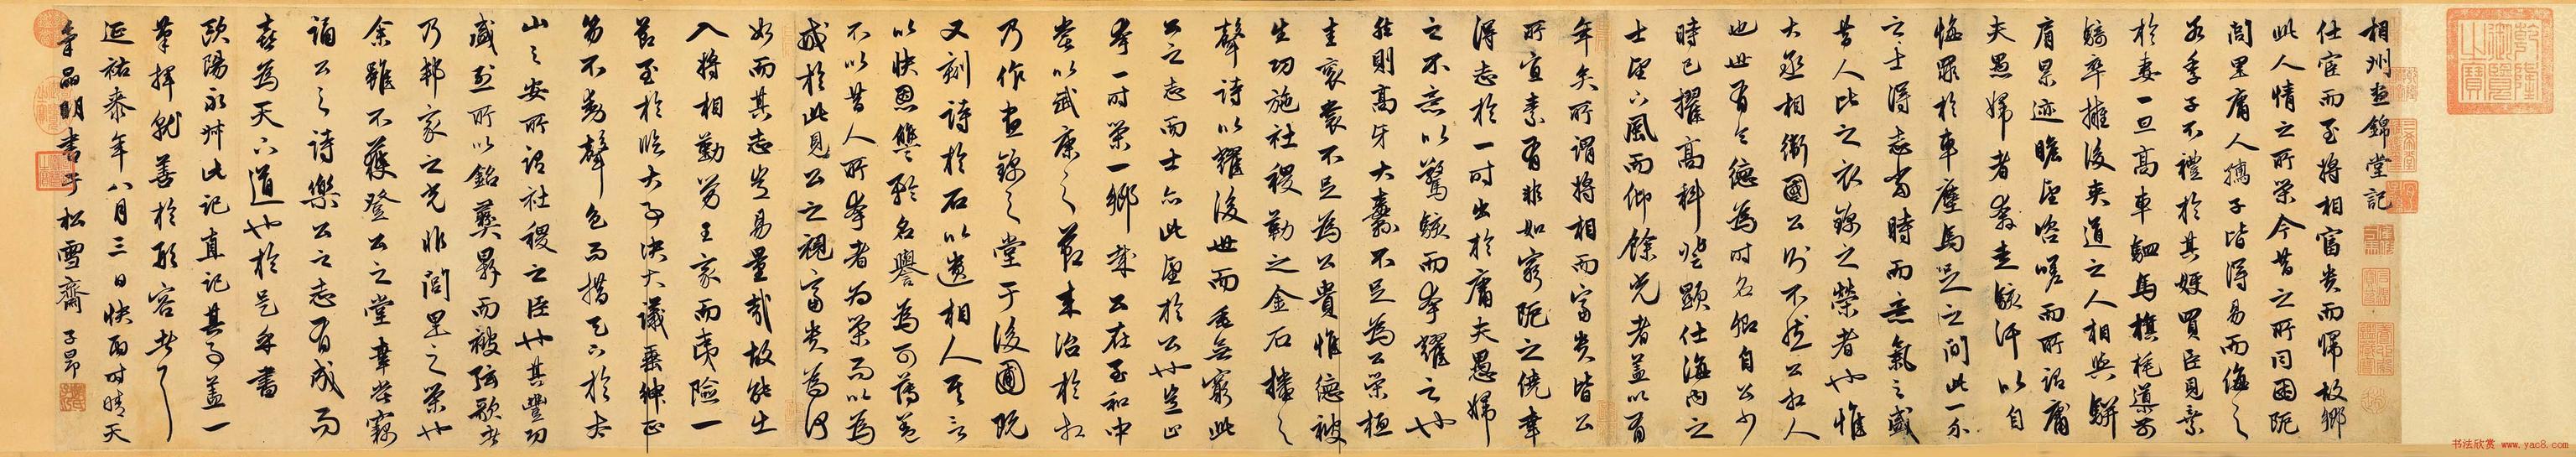 乾隆御覽之寶
相州晝錦堂記
仕宦而至將相富貴而歸故鄉
此人情之所榮今昔之所同困阨
閭里庸人孺子皆得易而侮之
若季子不禮於其嫂買臣見棄
於妻一旦高車駟馬旗旄導前
騎卒擁後夾道之人相與駢
肩累迹瞻望咨嗟而所謂庸
夫愚婦者奔走駭汗以自
悔罪於車塵馬足之間此一介
之士得志當時而意氣之盛
昔人比之衣錦之榮者也惟
大丞相衛國公則不然公相人
也世有令德為時名卿自公少
時已擢高科登顯仕海內之
士望下風而仰餘光者蓋以有
年矣所謂將相而富貴皆公
所宜素有非如窮阨之僥幸
得志於一時出於庸夫愚婦
之不意以驚駭而夸耀之也
然則高牙大纛不足為公榮桓
圭袞裳不足為公貴惟德被
生功施社稷勒之金石播之
聲詩以耀後世而垂無窮此
公之志而士亦此望於公也豈止
夸一時榮一鄉哉公在至和中
嘗以武康之節來治於相
乃作晝錦之堂于後圃既
又刻詩於石以遺相人其言
以快恩讎矜名譽為可薄蓋
不以昔人所夸者為榮而以為
戒於此見公之視富貴為何
如而其志豈易量哉故能出
入將相勤勞王家而夷險一
節至於臨大事決大議垂紳正
笏不動聲色而措天下於太
山之安所謂社稷之臣也其豐功
盛烈所以銘彝鼎而被弦歌者
乃邦家之光非閭里之榮也
余雖不獲登公之堂幸嘗竊
誦公之詩樂公之志有成而
喜為天下道也於是乎書
歐陽永叔此記真記其事蓋一
筆揮就善於形容者
延祐年八月三日快雨時晴天
氣明書于松雪齋 子昂
书法欣赏 www.yac8.com